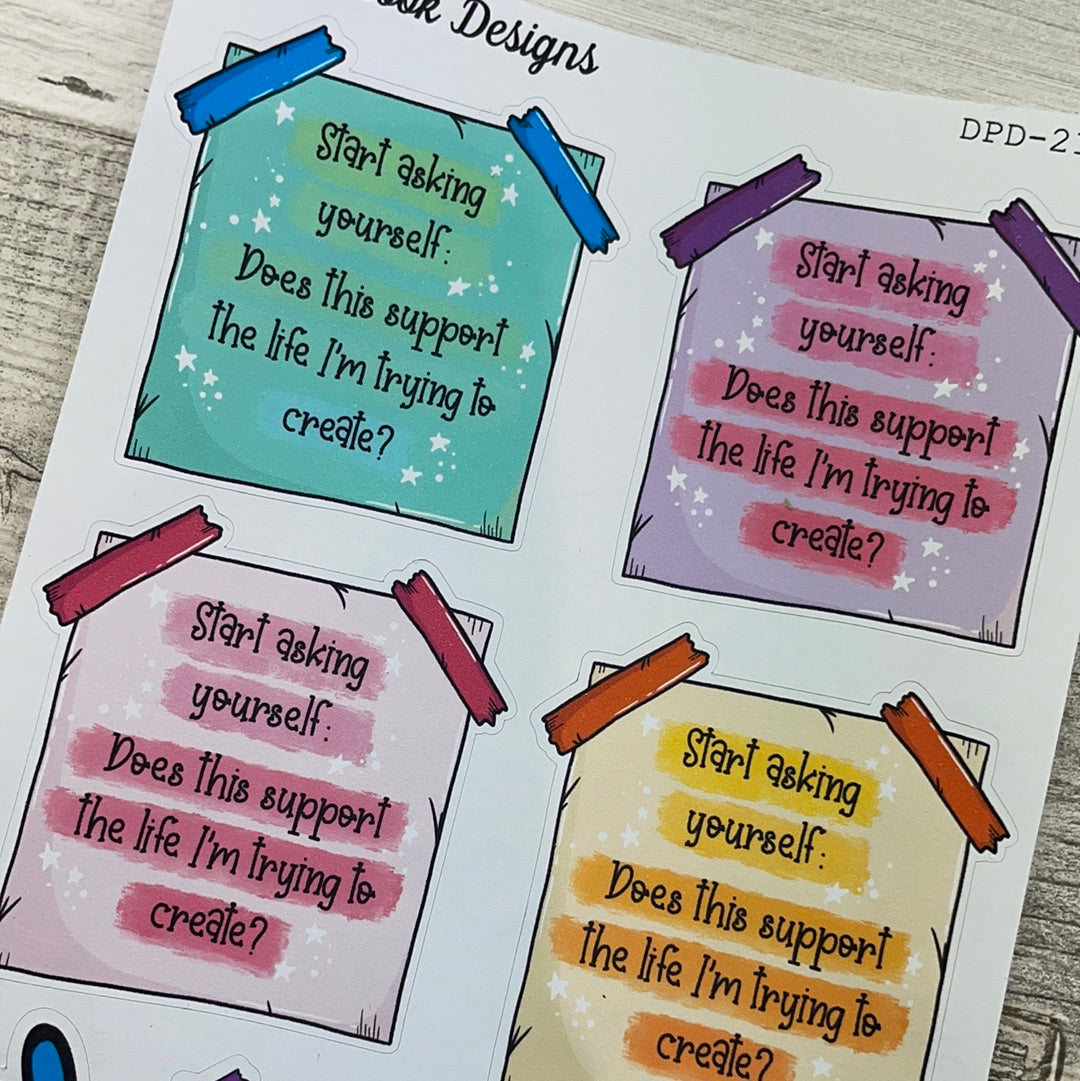 Designs
DPD-21
Start asking
yourself:
Does this support
the life I'm trying to
create?
Start asking
yourself:
Does this support
the life I'm trying to
create?
Start asking
yourself:
Does this support
the life I'm trying to
create?
Start asking
yourself:
Does this support
the life I'm trying to
create?